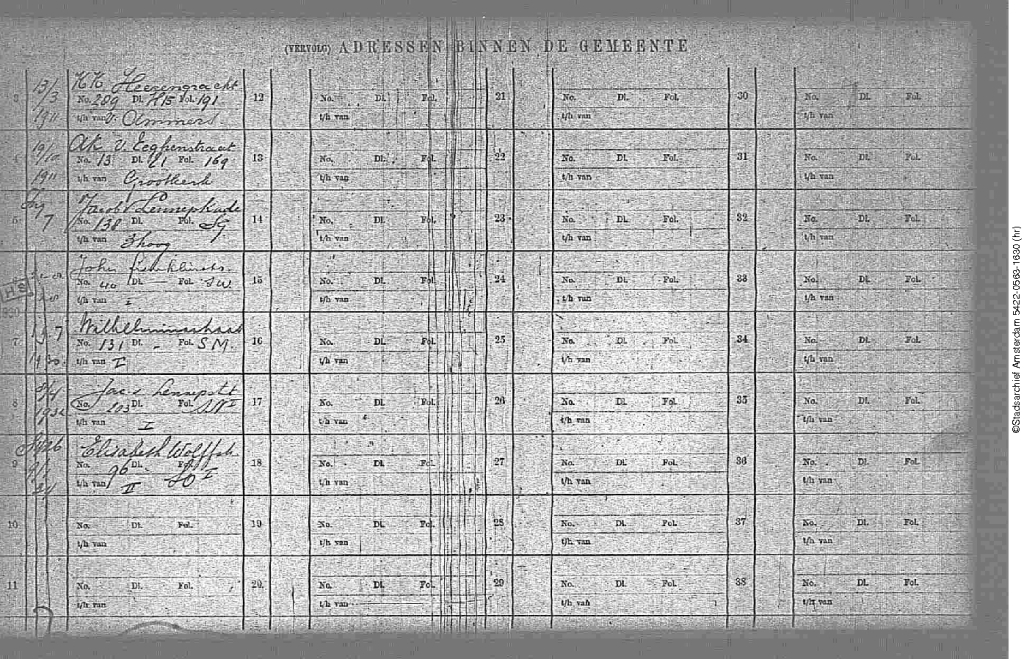 (VERVOLG) ADRESSEN BINNEN DE GEMEENTE
3 13/3 1911 KK Heerengracht
No. 289 Dl. H15 Fol. 191
t/h van v. Ommers
4 19/10 1911 v. Eeghenstraat
No. 13 Dl. 21 Fol. 169
t/h van Grootkerk
5 7 Jacob v Lennepkade
No. 138 Dl. Fol. SG
t/h van 3 hoog
H's
No. 40 Dl. — Fol. SW
t/h van I
7 Wilhelminastraat
No. 131 Dl. - Fol. S.M.
t/h van I
8 Jac v Lennepstr
No. 203 Dl. Fol.
t/h van I
9 Elisabeth Wolffstr
No. 96 Dl. Fol.
t/h van II
10 No. Dl. Fol.
t/h van
11 No. Dl. Fol.
t/h van
12 No. Dl. Fol.
t/h van
13 No. Dl. Fol.
t/h van
14 No. Dl. Fol.
t/h van
15 No. Dl. Fol.
t/h van
16 No. Dl. Fol.
t/h van
17 No. Dl. Fol.
t/h van
18 No. Dl. Fol.
t/h van
19 No. Dl. Fol.
t/h van
20. No. Dl. Fol.
t/h van
21 No. Dl. Fol.
t/h van
22 No. Dl. Fol.
t/h van
23 No. Dl. Fol.
t/h van
24 No. Dl. Fol.
t/h van
25 No. Dl. Fol.
t/h van
26 No. Dl. Fol.
t/h van
27 No. Dl. Fol.
t/h van
28 No. Dl. Fol.
t/h van
29 No. Dl. Fol.
t/h van
30 No. Dl. Fol.
t/h van
31 No. Dl. Fol.
t/h van
32 No. Dl. Fol.
t/h van
33 No. Dl. Fol.
t/h van
34 No. Dl. Fol.
t/h van
35 No. Dl. Fol.
t/h van
36 No. Dl. Fol.
t/h van
37 No. Dl. Fol.
t/h van
38 No. Dl. Fol.
t/h van
©Stadsarchief Amsterdam 5422-0563-1630 (hr)